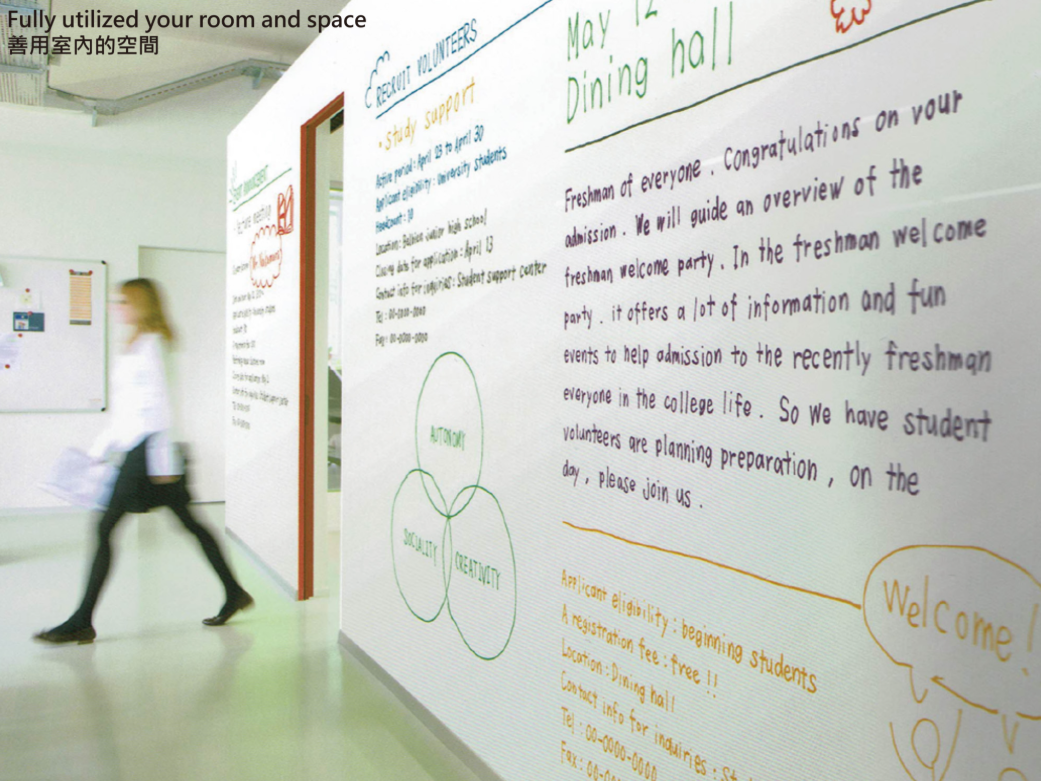 Fully utilized your room and space
善用室內的空間
May 12
Dining hall
Freshman of everyone . Congratulations on your
admission . We will guide an overview of the
freshman welcome party . In the freshman welcome
party . it offers a lot of information and fun
events to help admission to the recently freshman
everyone in the college life . So we have student
volunteers are planning preparation , on the
day , please join us .
Applicant eligibility : beginning students
A registration fee : free !!
Location : Dining hall
Contact info for inquiries :
Tel : 00-0000-0000
Fax : 00-
Welcome !
RECRUIT VOLUNTEERS
• Study support
Active period : April 23 to April 30
Applicant eligibility : University students
Headcount : 10
Location : junior high school
Closing date for application : April 13
Contact info for inquiries : Student support center
Tel : 00-0000-0000
Fax : 00-0000-0000
AUTONOMY
SOCIALITY
CREATIVITY